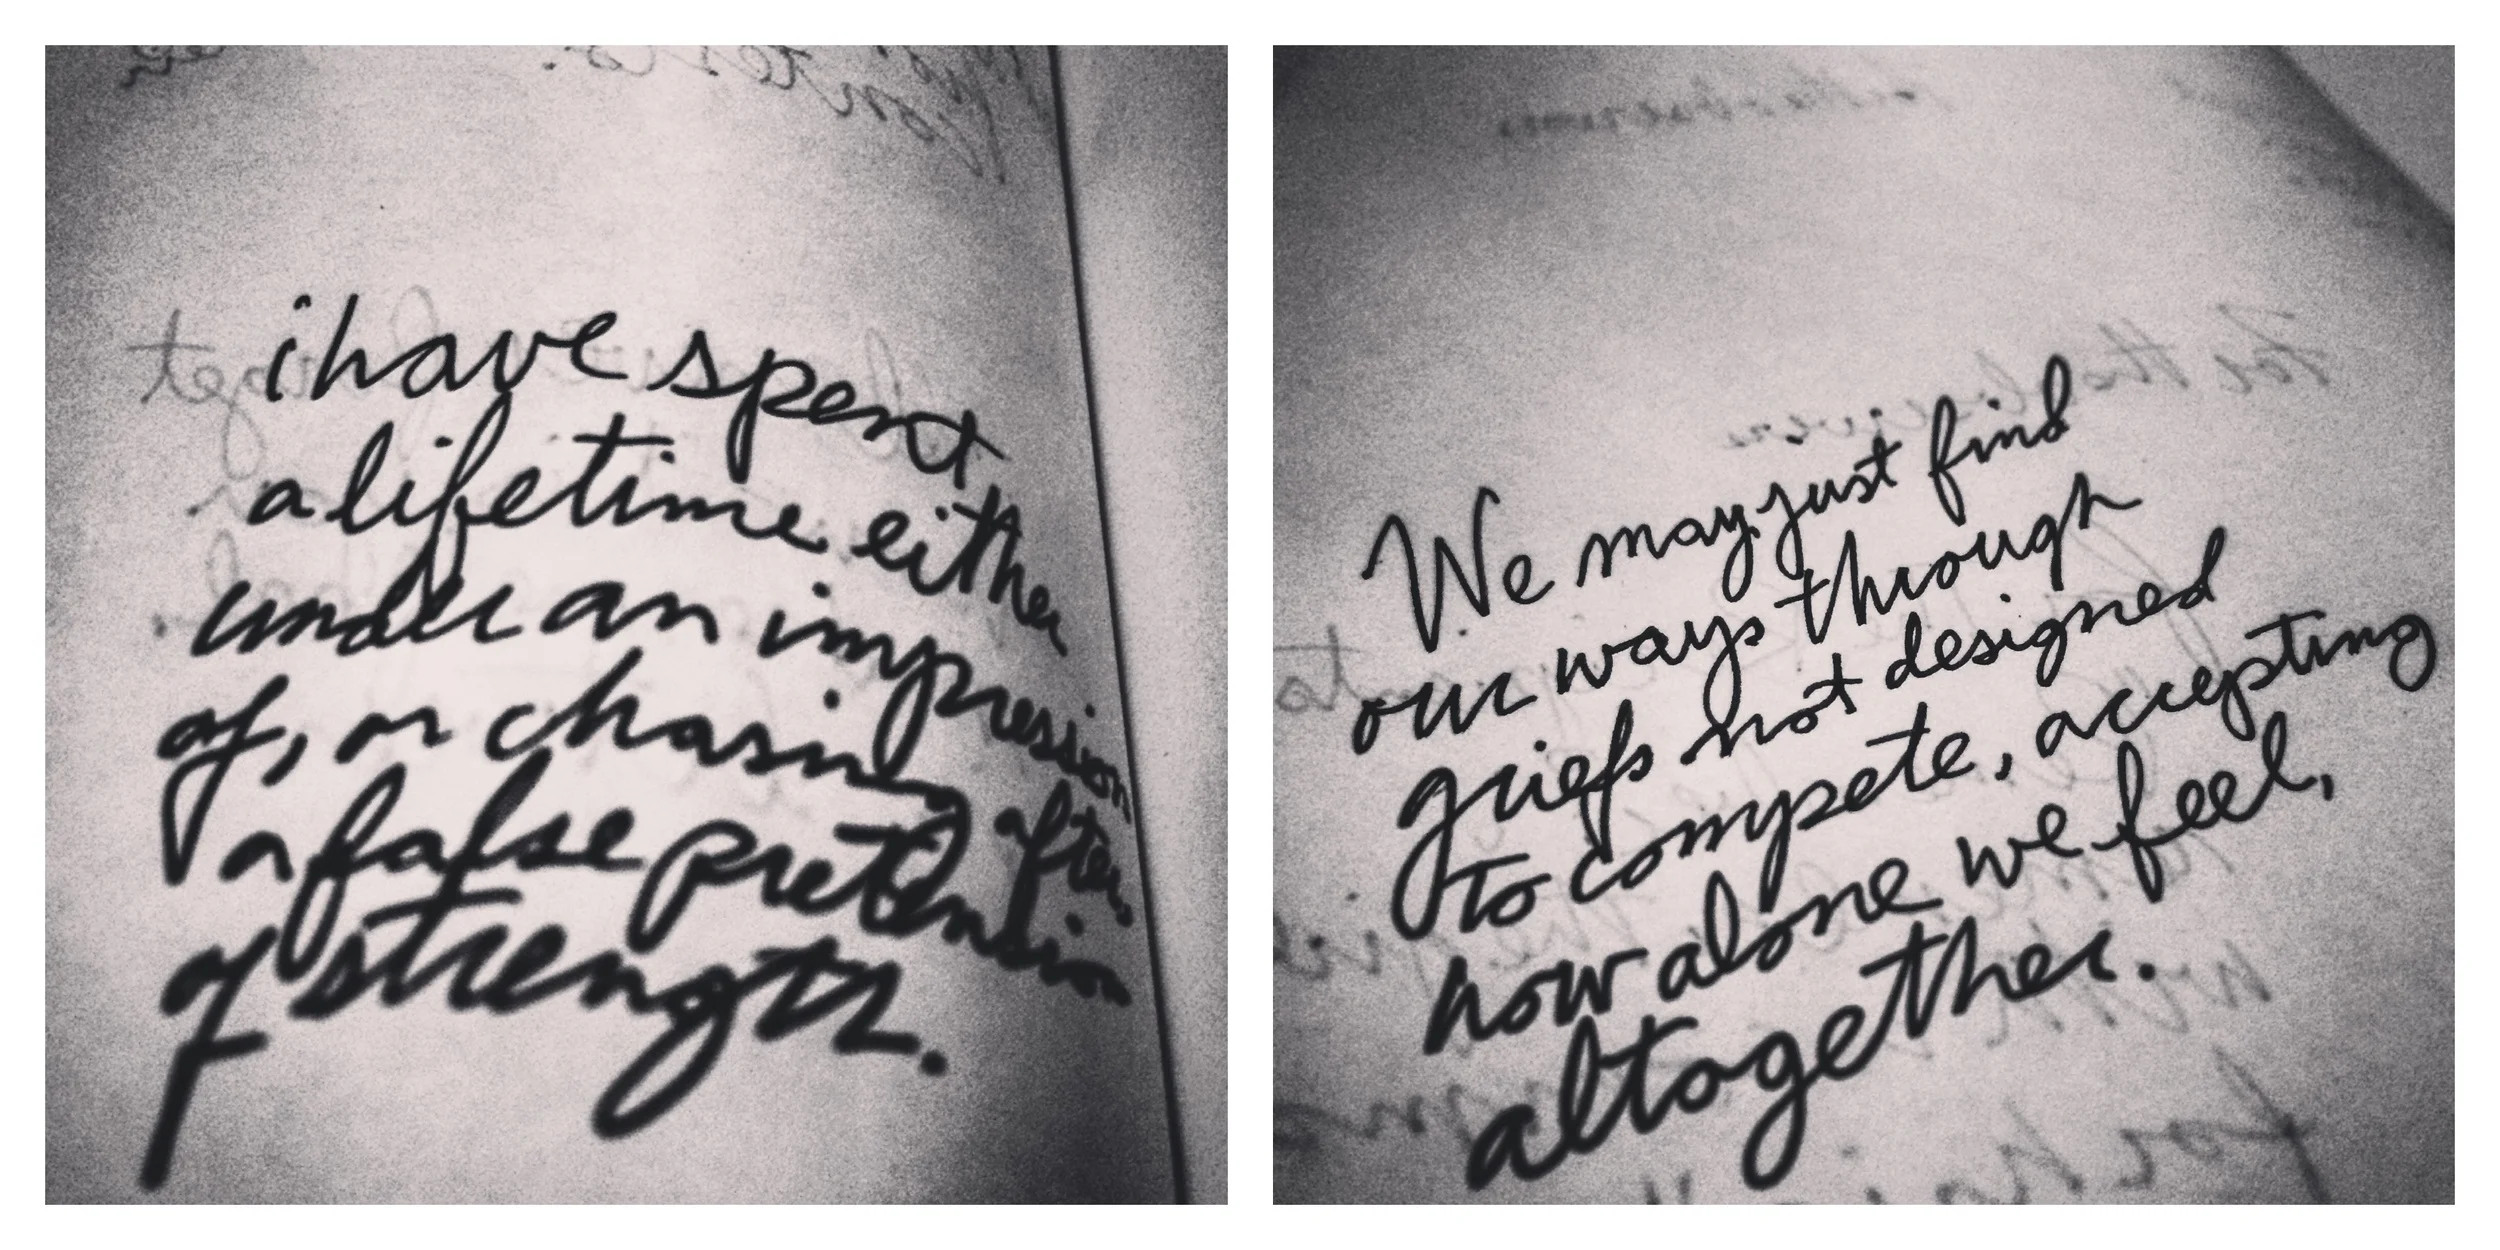 i have spent
a lifetime either
under an impression
of, or chasing after,
a false pretension
of strength.
We may just find
our ways through
griefs not designed
to compete, accepting
how alone we feel,
altogether.